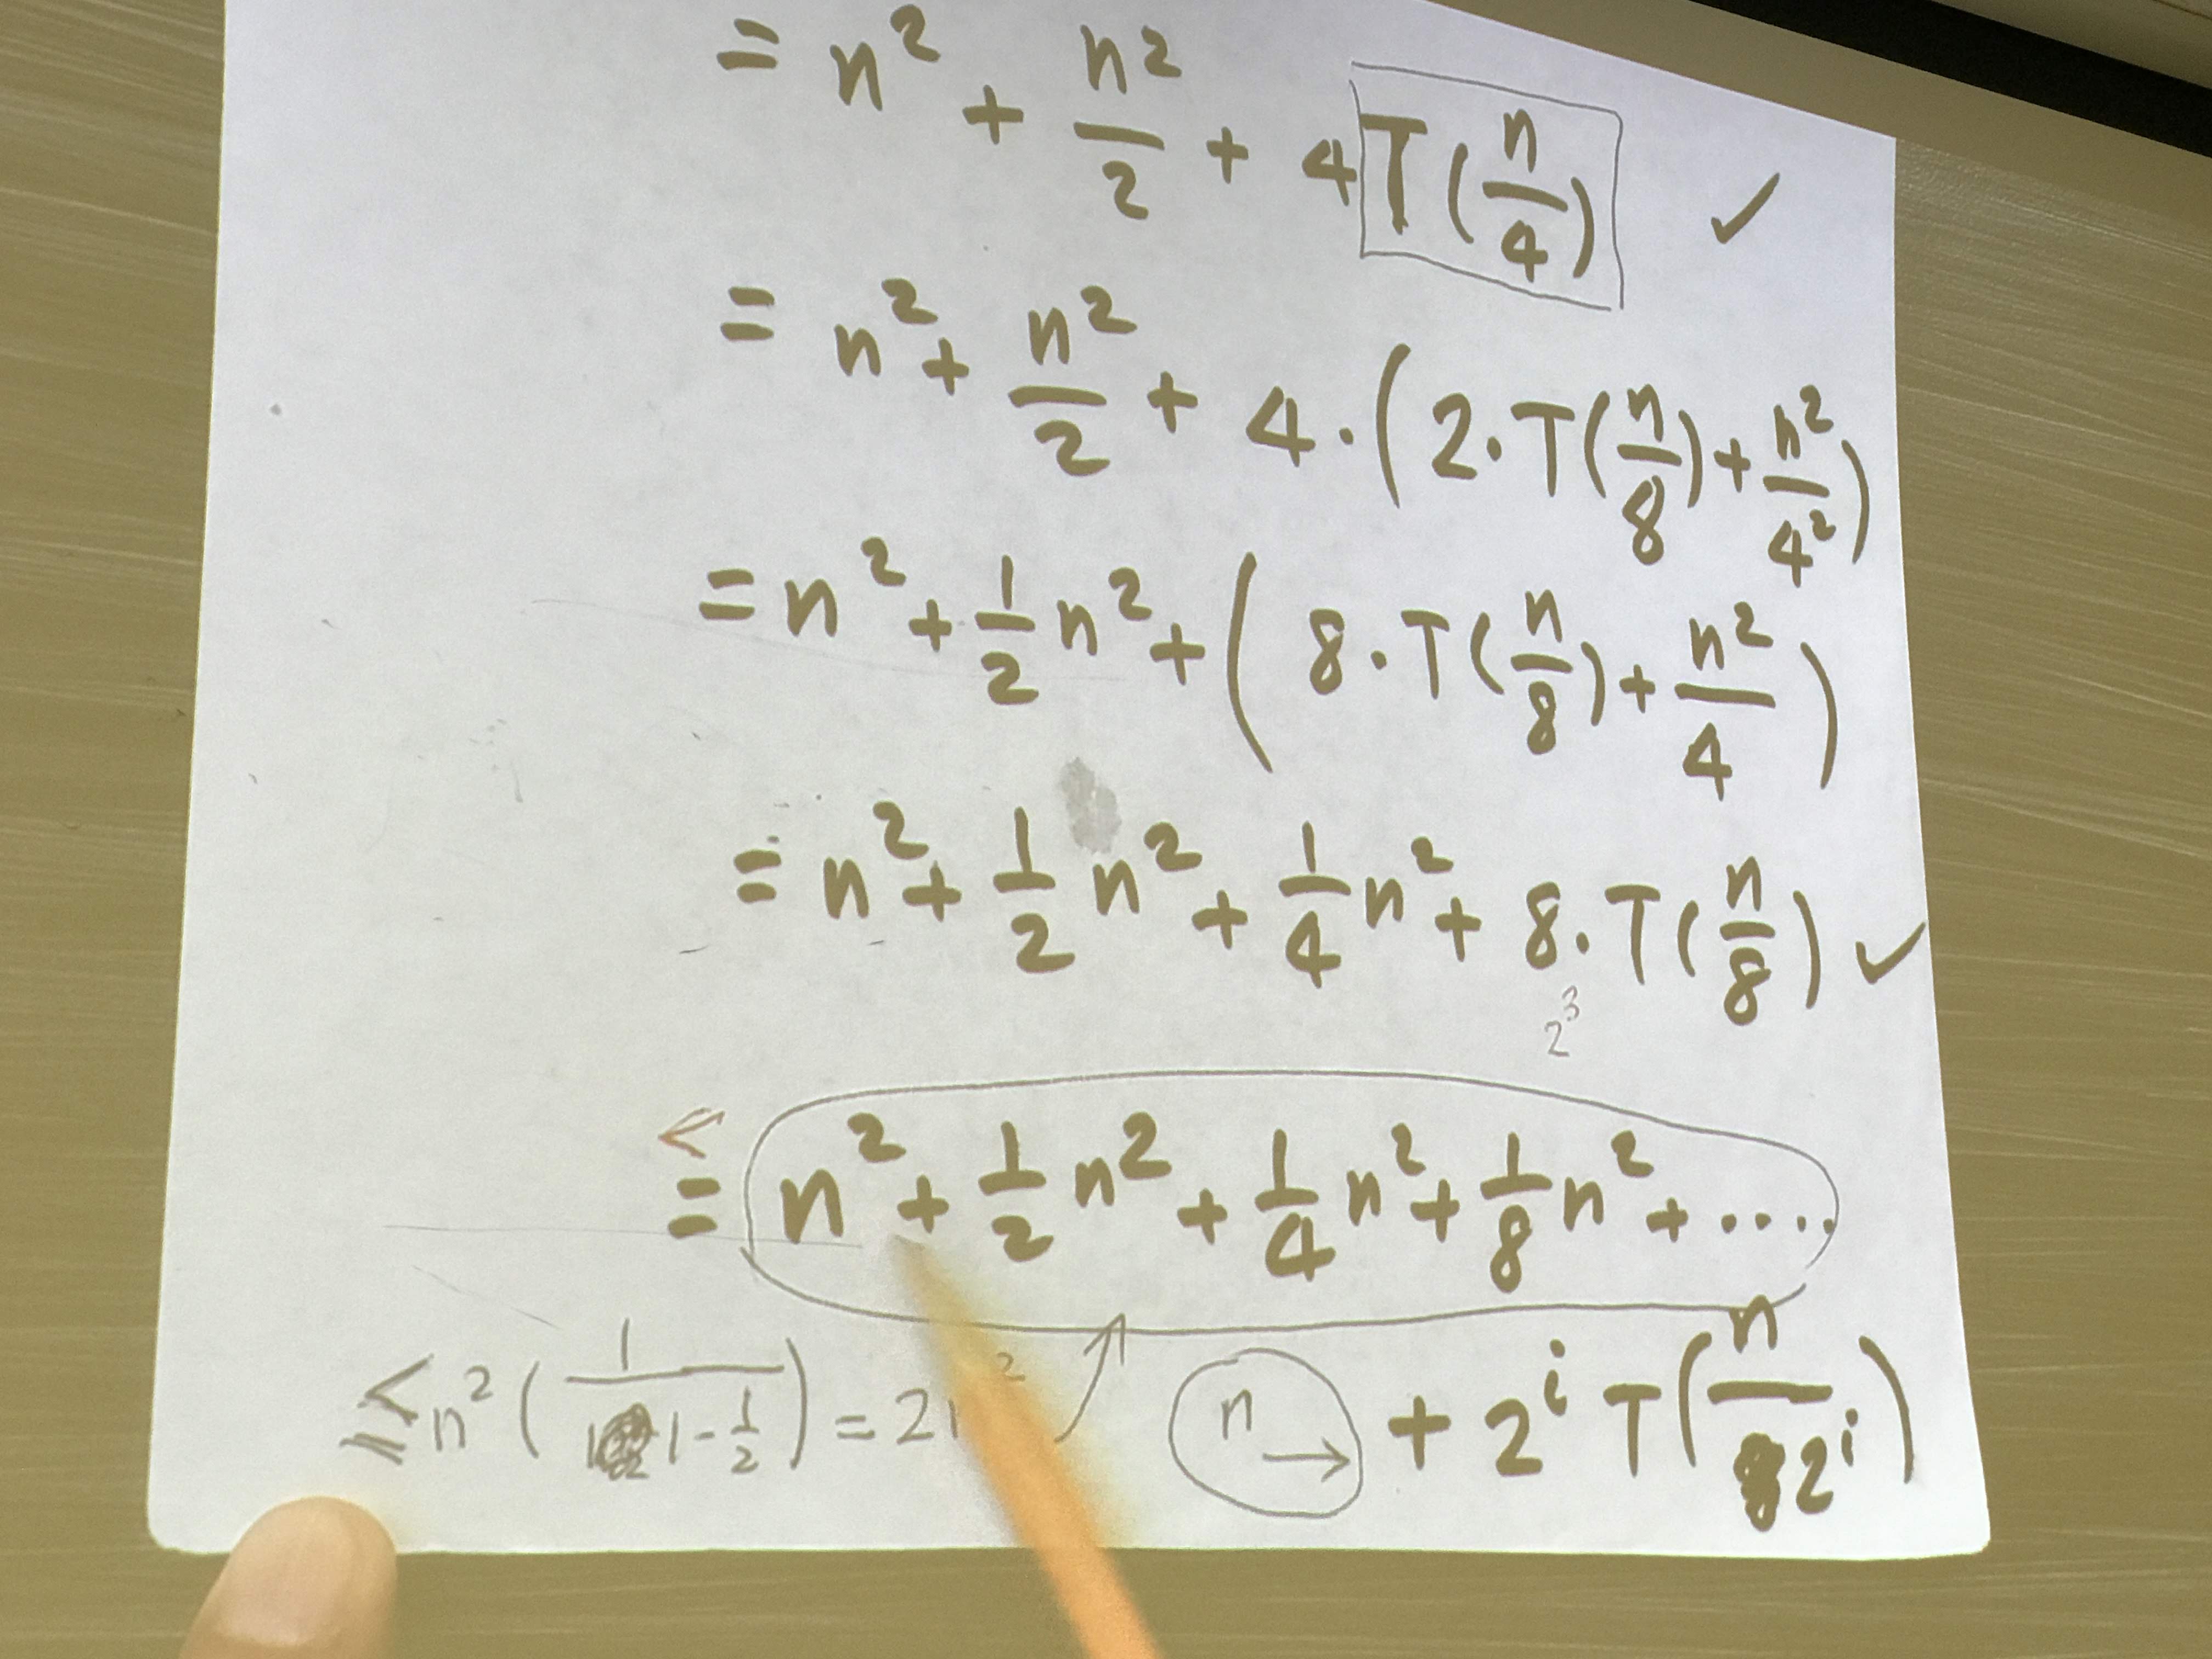 = n² + n²/2 + 4T(n/4) ✓
= n² + n²/2 + 4·(2·T(n/8) + n²/4²)
= n² + 1/2 n² + (8·T(n/8) + n²/4)
= n² + 1/2 n² + 1/4 n² + 8·T(n/8) ✓
2³
<
= n² + 1/2 n² + 1/4 n² + 1/8 n² + ....
≤ n² (1/(1-1/2)) = 2 ² ↑ n → + 2ⁱ T(n/2ⁱ)